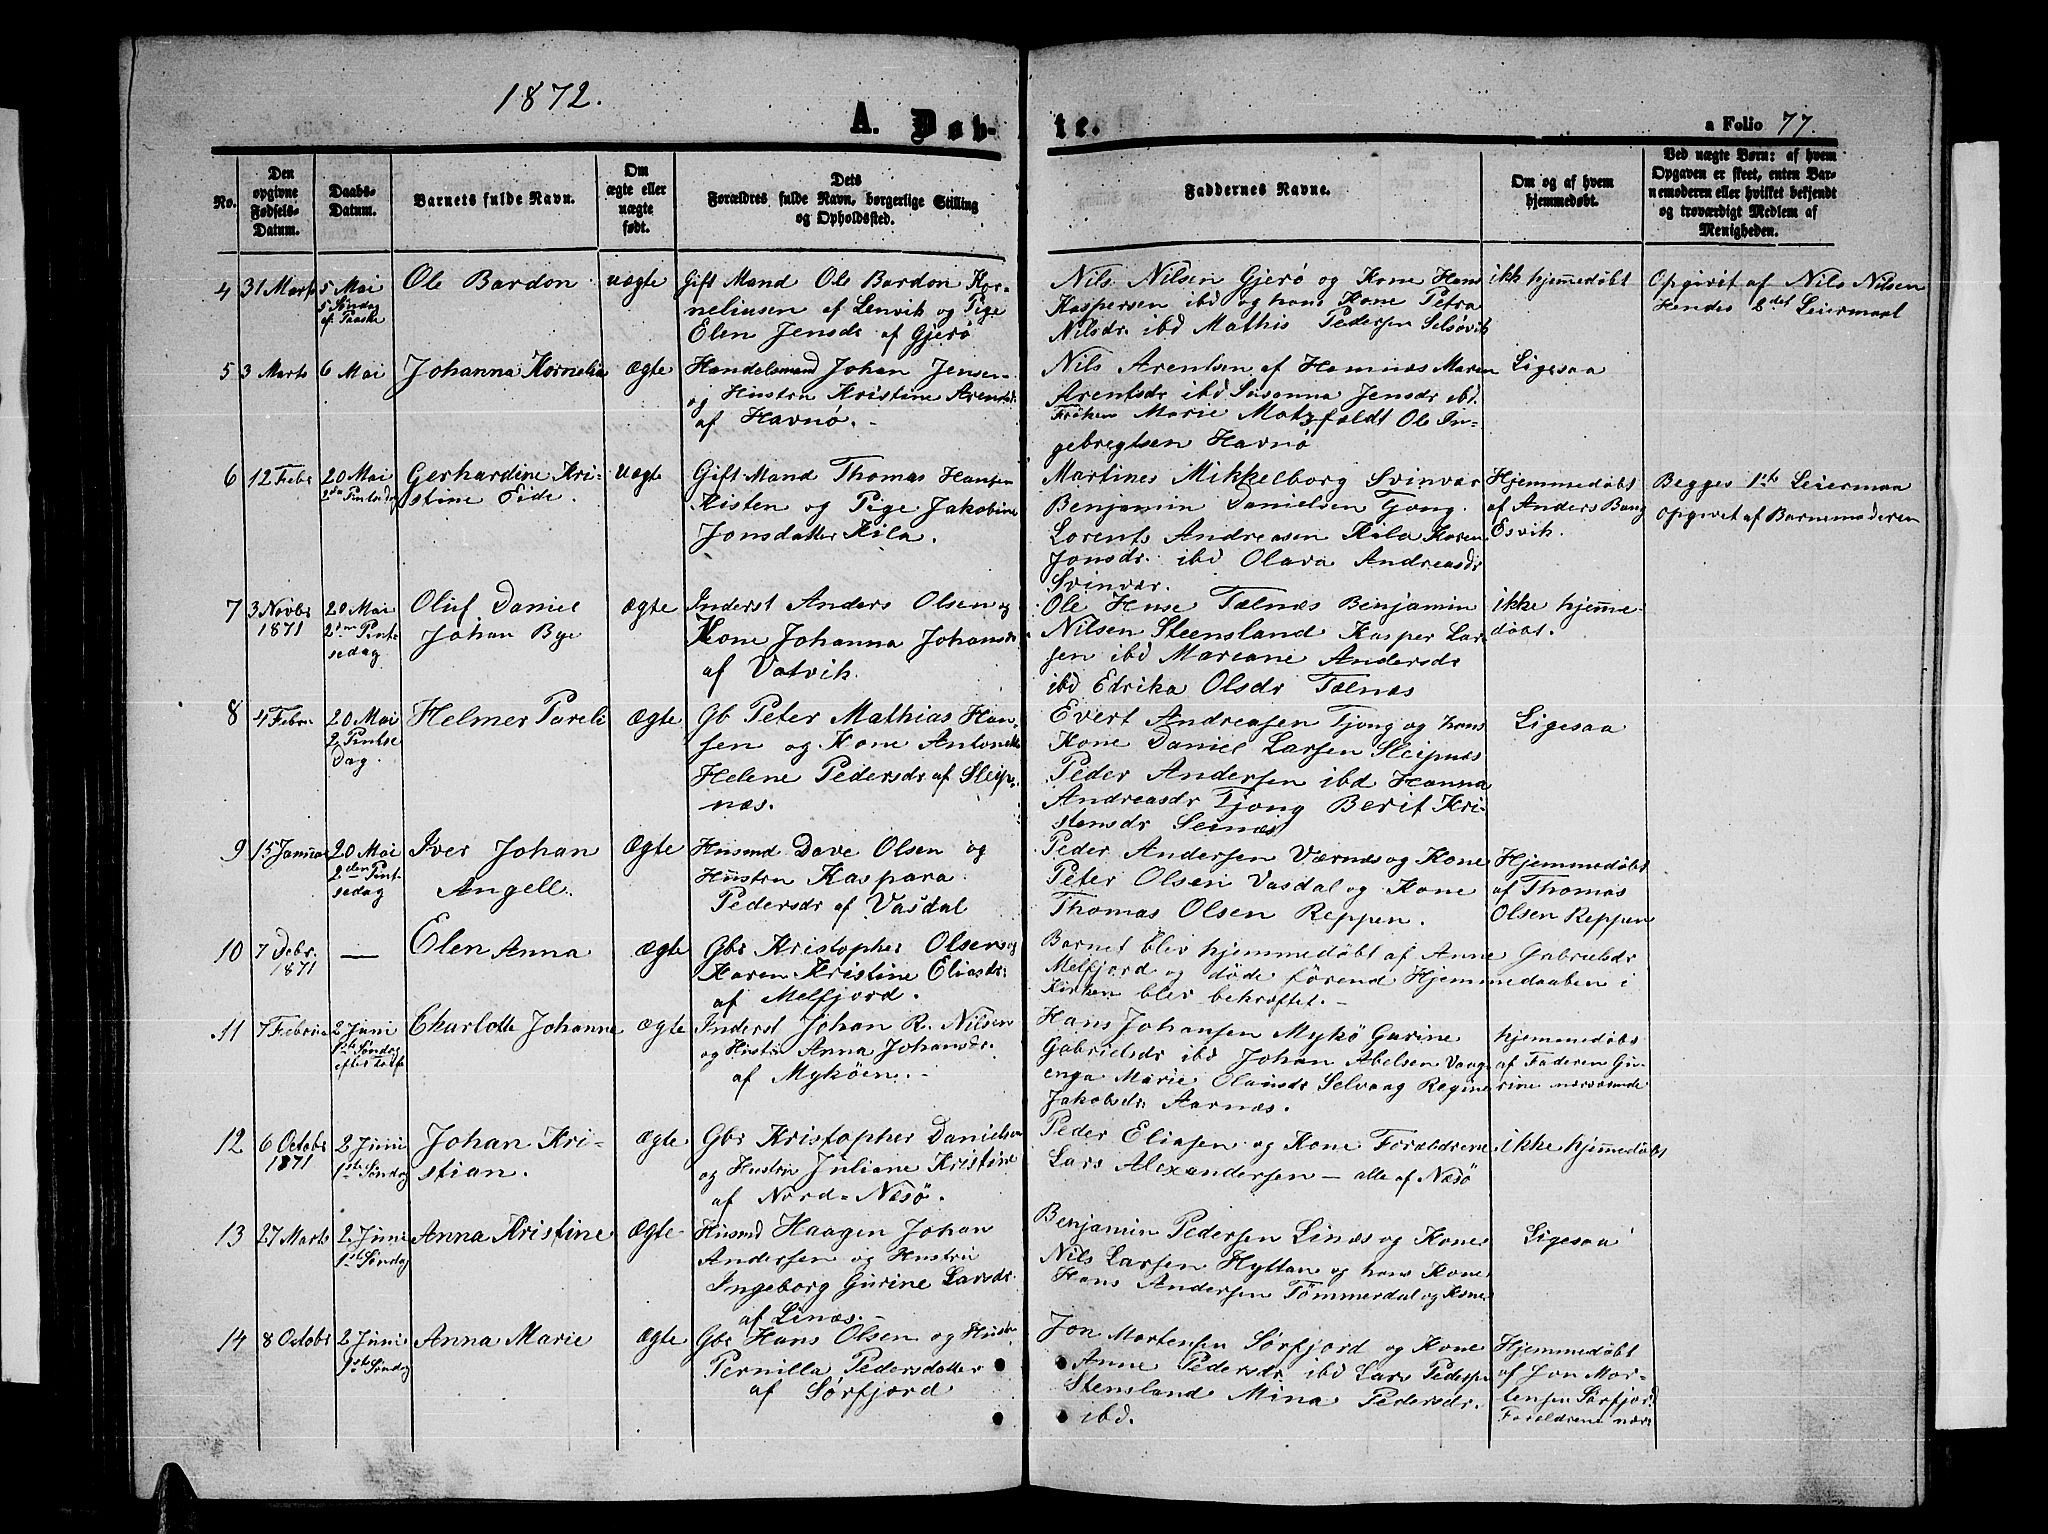 1872.
A. Døb-
te.
a Folio 77.
No.
Den
opgivne
Fødsels-
Datum.
Daabs-
Datum.
Barnets fulde Navn.
Om
ægte eller
uægte
født.
Dets
Forældres fulde Navn, borgerlige Stilling
og Opholdssted.
Faddernes Navne.
Om og af hvem
hjemmedøbt.
Ved uægte Børn: af hvem
Opgaven er skeet, enten Bar-
nemoderen eller hvilket bekjendt
og troværdigt Medlem af
Menigheden.
4
31 Marts
5 Mai
5 Søndag
ef. Paaske
Ole Bardon
uægte
Gift Mand Ole Bardon Kor-
neliusen af Lenvik og Pige
Elen Jensdr af Gjerø
Nils Nilsen Gjerø og Kone Hans
Kaspersen ibd og hans Kone Petra
Nilsdr ibd Mathis Pedersen Selsøvik
ikk hjemmedøbt
Opgivet af Nils Nilsen
Hendes 2det Leiermaal
5
3 Marts
6 Mai
Johanna Kornelia
Ægte
Handelsmand Johan Jensen
og Hustru Kristine Arentsdr
af Havnø.
Nils Arentsen af Hemnæs Maren
Arentsdr ibd Susanna Jensdr ibd.
Frøken Marie Motzfeldt Ole In-
gebregtsen Havnø
Ligesaa
6
12 Febr
20 Mai
2den Pintsedag
Gerhardine Kri-
stine Fide.
Uægte
Gift Mand Thomas Hansen
Kisten og Pige Jakobine
Jonsdatter Kila.
Martines Mikkelborg Svinvær
Benjamin Danielsen Tjong.
Lorents Andreasen Kila Karen
Jonsdr. ibd Olava Andreasdr
Svinvær.
Hjemmedøbt
af Anders Bang
Esvik.
Begges 1ste Leiermaal
opgivet af Barnemoderen
7
3 Novbr
1871
20 Mai
2den Pint-
sedag
Oluf Daniel
Johan Bye
Ægte
Inderst Anders Olsen og
Kone Johanna Johansdr
af Vatvik.
Ole Huse Tælnæs Benjamin
Nilsen Steensland Kasper Lar-
sen ibd Mariane Andersdr
ibd Edrika Olsdr Tælnæs
ikke hjemme-
døbt.
8
4 Febr.
20 Mai
2 Pintse
Dag.
Helmer Pareli
Ægte
Gb Peter Mathias Han-
sen og Kone Antonette
Helene Pedersdr af Sleip-
næs.
Evert Andreasen Tjong og hans
Kone Daniel Larsen Sleipnæs
Peder Andersen ibd Hanna
Andreasdr Tjong Berit Kri-
stensdr Seinæs
Ligesaa
9
15 Januar
20 Mai
2den Pint-
sedag
Iver Johan
Angell.
Ægte
Husmd Dave Olsen og
Hustru Kaspara
Pedersdr af Vasdal
Peder Andersen Værnæs og Kone
Peter Olsen Vasdal og Kone
Thomas Olsen Reppen.
Hjemmedøbt
af Thomas
Olsen Reppen
10
7 Debr.
1871
—
Elen Anna
Ægte
Gbr Kristopher Olsen og
Karen Kristine Eliasdr
af Melfjord.
Barnet blev hjemmedøbt af Anne Gabrielsdr
Melfjord og døde førend Hjemmedaaben i
Kirken blev bekræftet.—
11
7 Februar
2 Juni
1ste Søndag
efter Trefo
Charlotte Johanne
Ægte
Inderst Johan R. Nilsen
og Hustru Anna Johansdr.
af Mykøen.—
Hans Johansen Mykø Gurine
Gabrielsdr ibd Johan Abelsen Vaag
enga Marie Olausdr Selvaag Regine
Jakobsdr Aarnæs.
hjemmedøbt
af Faderen Gu-
rine nærværende
12
6 Octobr
1871
2 Juni
1ste Søndag
Johan Kri-
stian.
Ægte
Gbr Kristopher Danielsen
og Hustru Juliane Kristine
af Nord-Næsø.
Peder Eliasen og Kone Forældrene
Lars Alexandersen — alle af Næsø
ikke hjemmedøbt
13
27 Marts
2 Juni
1ste Søndag
Anna Kristine
Ægte
Husmd Haagen Johan
Andersen og Hustru
Ingeborg Gurine Larsdr
af Linæs.—
Benjamin Pedersen Linæs og Kone
Nils Larsen Hyttan og hans Kone
Hans Andersen Tømmerdal og Kone
Ligesaa
14
8 Octobr
2 Juni
1ste Søndag
Anna Marie
Ægte
Gbr Hans Olsen og Hustru
Pernilla Pedersdatter
af Sørfjord
Jon Mortensen Sørfjord og Kone
Anne Pedersdr ibd Lars Pedersen
Stensland Mina Pedersdr.
ibd.
Hjemmedøbt
af Jon Mor-
tensen Sørfjord
Forældrene nærv